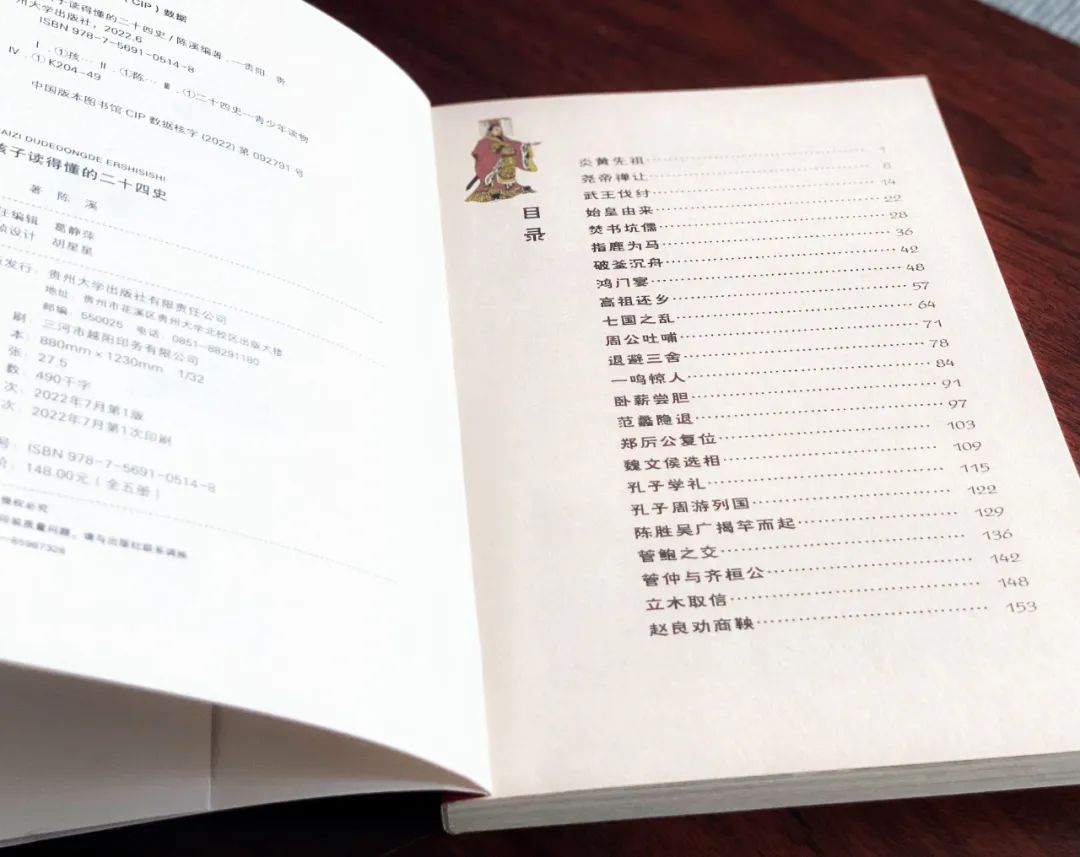 （CIP）数据
孩子读得懂的二十四史 / 陈溪编著. —贵阳: 贵
州大学出版社, 2022.6
ISBN 978-7-5691-0514-8
Ⅰ. ①孩… Ⅱ. ①陈… Ⅲ. ①二十四史—青少年读物
Ⅳ. ①K204-49
中国版本图书馆 CIP 数据核字 (2022) 第 092791 号
AIZI DUDEDONGDE ERSHISISHI
孩子读得懂的二十四史
著 陈 溪
任编辑 葛静萍
帧设计 胡星星
发行: 贵州大学出版社有限责任公司
地址: 贵州市花溪区贵州大学北校区出版大楼
邮编: 550025 电话: 0851-88291180
刷 三河市越阳印务有限公司
本 880mm×1230mm 1/32
张: 27.5
数: 490千字
次: 2022年7月第1版
次: 2022年7月第1次印刷
号: ISBN 978-7-5691-0514-8
价: 148.00元（全五册）
侵权必究
印装质量问题, 请与出版社联系调换
-85987328
目录
炎黄先祖……1
尧帝禅让……8
武王伐纣……14
始皇由来……22
焚书坑儒……28
指鹿为马……36
破釜沉舟……42
鸿门宴……48
高祖还乡……57
七国之乱……64
周公吐哺……71
退避三舍……78
一鸣惊人……84
卧薪尝胆……91
范蠡隐退……97
郑厉公复位……103
魏文侯选相……109
孔子学礼……115
孔子周游列国……122
陈胜吴广揭竿而起……129
管鲍之交……136
管仲与齐桓公……142
立木取信……148
赵良劝商鞅……153